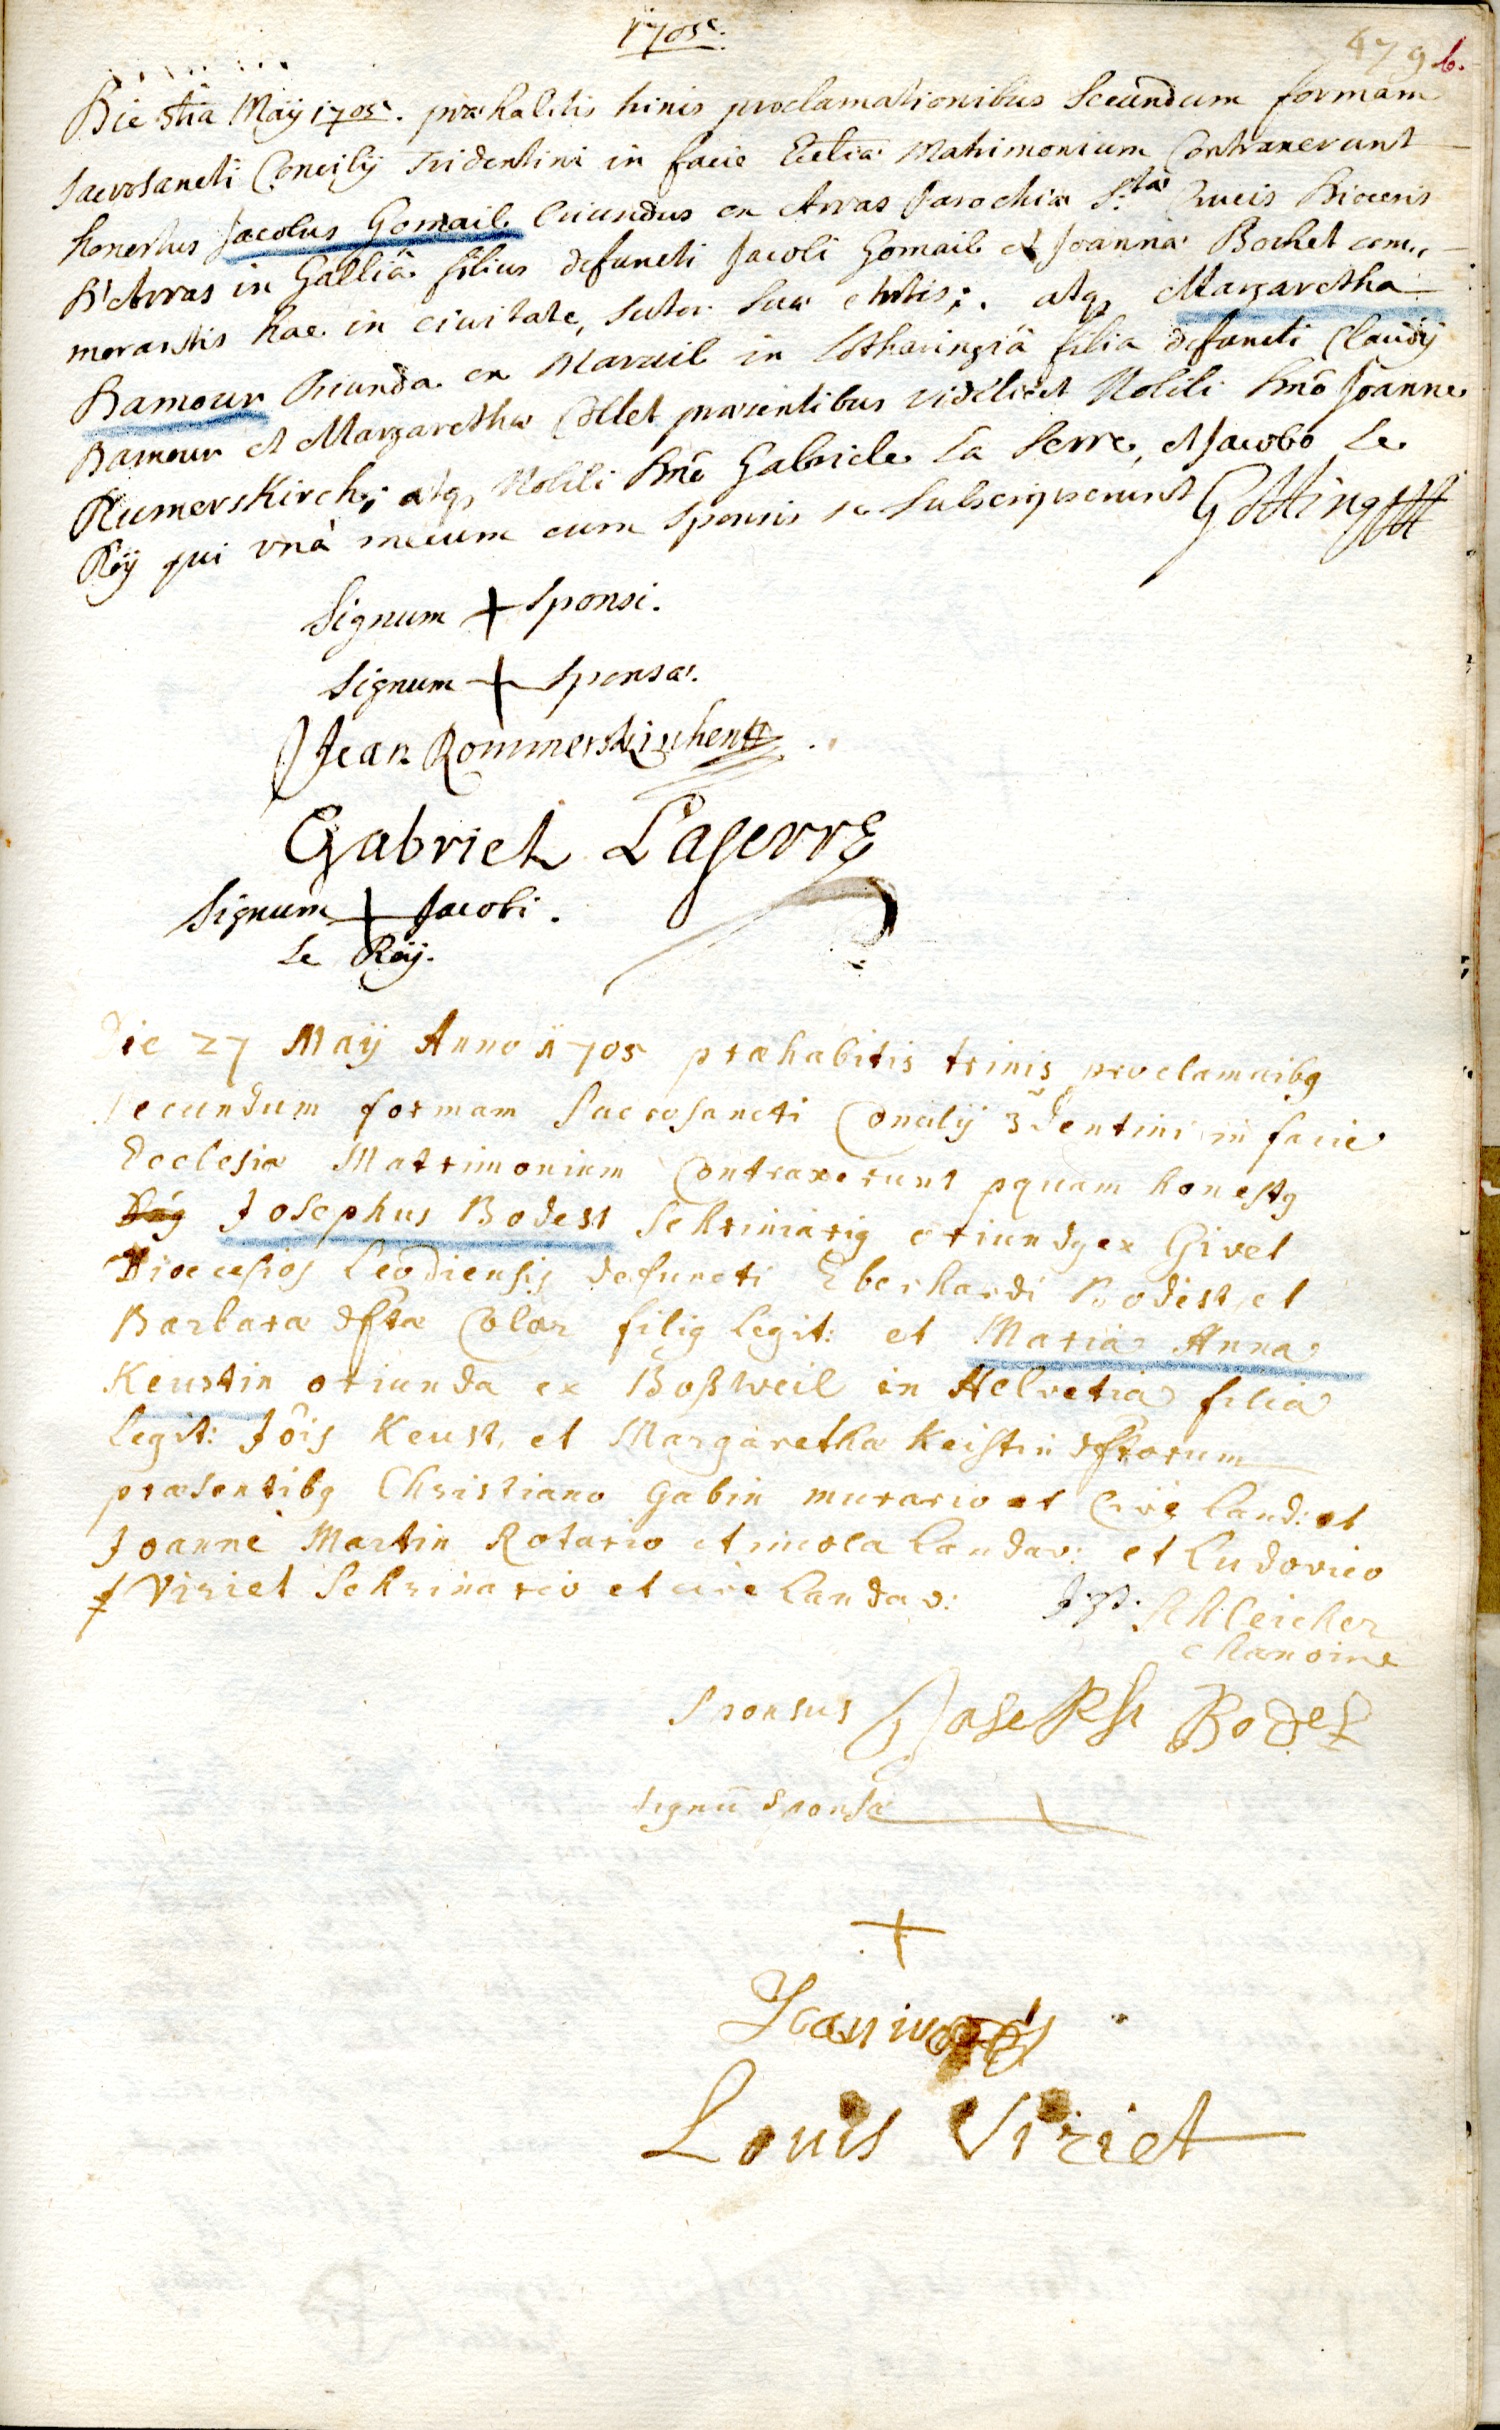 1705.
479 b.
Die 5ta Maÿ 1705. præhabitis trinis proclamationibus Secundum formam
sacrosancti Concilÿ Tridentini in facie Eccliæ Matrimonium Contraxerunt
honestus Jacobus Gomail Oriundus ex Arras Parochiæ S.tæ Crucis Diœcesis
D'Arras in Galliâ filius defuncti Jacobi Gomail et Joannæ Bochet com„
morantis hac in civitate, sutor suæ artis; atq Margaretha
Damour Oriunda ex Marvil in Lotharingiâ filia defuncti Claudÿ
Damour et Margarethæ Collet præsentibus videlicet Nobili Dnō Joanne
Rumerskirch; atq Nobili Dnō Gabriele La Serre, et Jacobo Le
Roÿ qui unà mecum cum sponsis se subscripserunt Götting
Signum + Sponsi.
Signum + Sponsæ.
Jean Rommerskirchen
Gabriel Laserre
Signum + Jacobi.
Le Roÿ.
Die 27 Maÿ Anno 1705 præhabitis trinis proclamaibq
secundum formam Sacrosancti Concilÿ 3dentini in facie
Ecclesiæ Matrimonium Contraxerunt pquam honestq
Josephus Bodest Schriniariq oriundq ex Givet
Diœcesios Leodiensis defuncti Eberhardi Bodest, et
Barbaræ dftæ Colar filiq legit: et Maria Anna
Keustin oriunda ex Boßweil in Helvetia filia
legit: Jōis Keust, et Margaretha Keistin dftorum
præsentibq Christiano Gabin murario et Cive Land: et
Joanne Martin Rotario et incola Landav: et Ludovico
Viriet Schrinario et cive Landav: J: P: Schleicher
chanoine
Sponsus Joseph Bodes
signū sponsæ
+
Louis Viriet